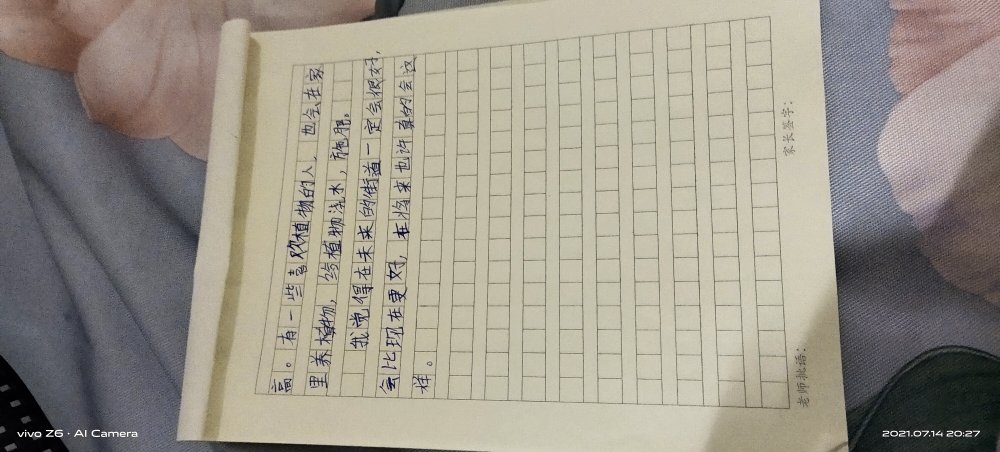 高。有一些喜欢植物的人，也会在家
里养植物，给植物浇水，施肥。
我觉得在未来的街道一定会很好，
会比现在更好，在将来也许真的会这
样。
老师批语：
家长签字：
vivo Z6 · AI Camera
2021.07.14 20:27